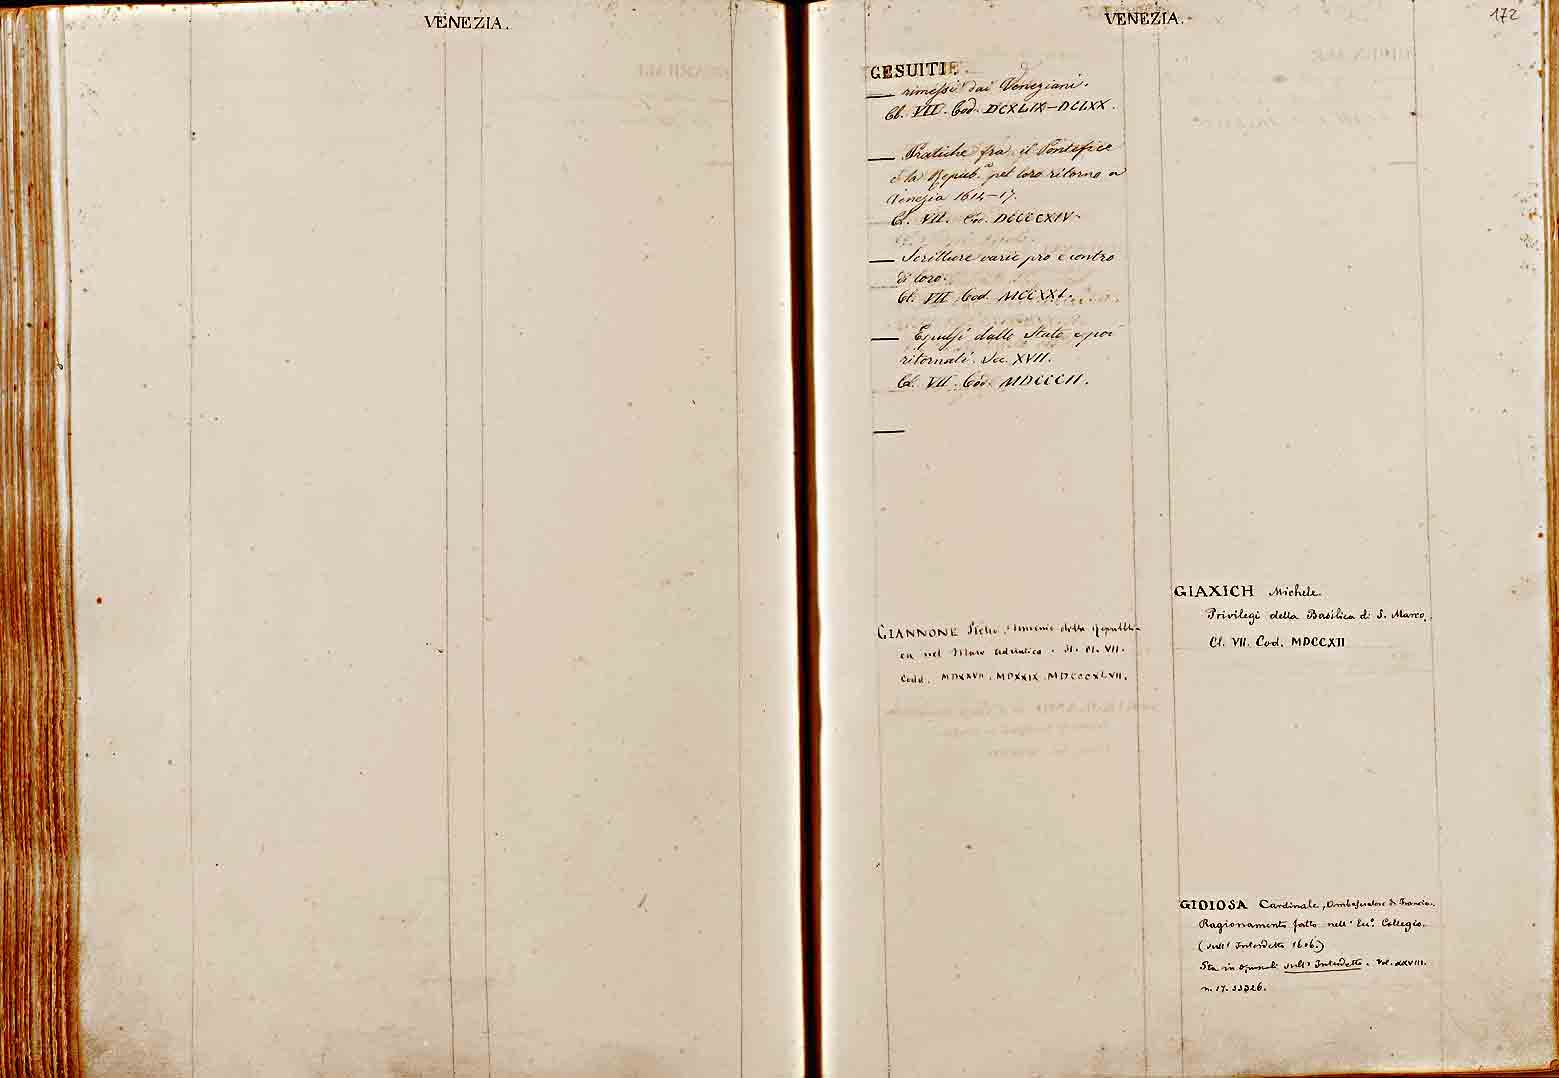 VENEZIA.
VENEZIA.
172
GESUITI
— rimessi dai Veneziani.
Cl. VII. Cod. DCXLIX-DCLXX.
— Pratiche fra il Pontefice
e la Repub.a pel loro ritorno a
Venezia 1614-17.
Cl. VII. Cod.
— Scritture varie pro e contro
di loro.
Cl. VII. Cod. MCCXXI.
— Espulsi dallo Stato e poi
ritornati. Sec. XVII.
Cl. VII. Cod. MDCCCII.
—
GIANNONE Pietro, Dominio della Repubbli-
ca nel Mare Adriatico. It. Cl. VII.
Codd. MDXXVII. MDXXIX. MDCCCXLVII.
GIAXICH Michele
Privilegi della Basilica di S. Marco.
Cl. VII. Cod. MDCCXII
GIOIOSA Cardinale, Ambasciatore di Francia.
Ragionamento fatto nell' Ecc.o Collegio.
(sull' Interdetto 1606.)
Sta in Opuscoli sull' Interdetto. Vol. XXVIII.
n. 17. 33726.